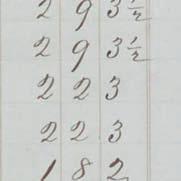 2 9 3 1/2
2 9 3 1/2
2 2 3
2 2 3
1 8 2